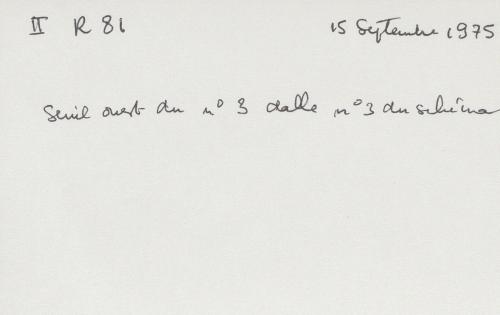 II R 81
15 Septembre 1975
Seuil ouest du n° 3 dalle n° 3 du schéma